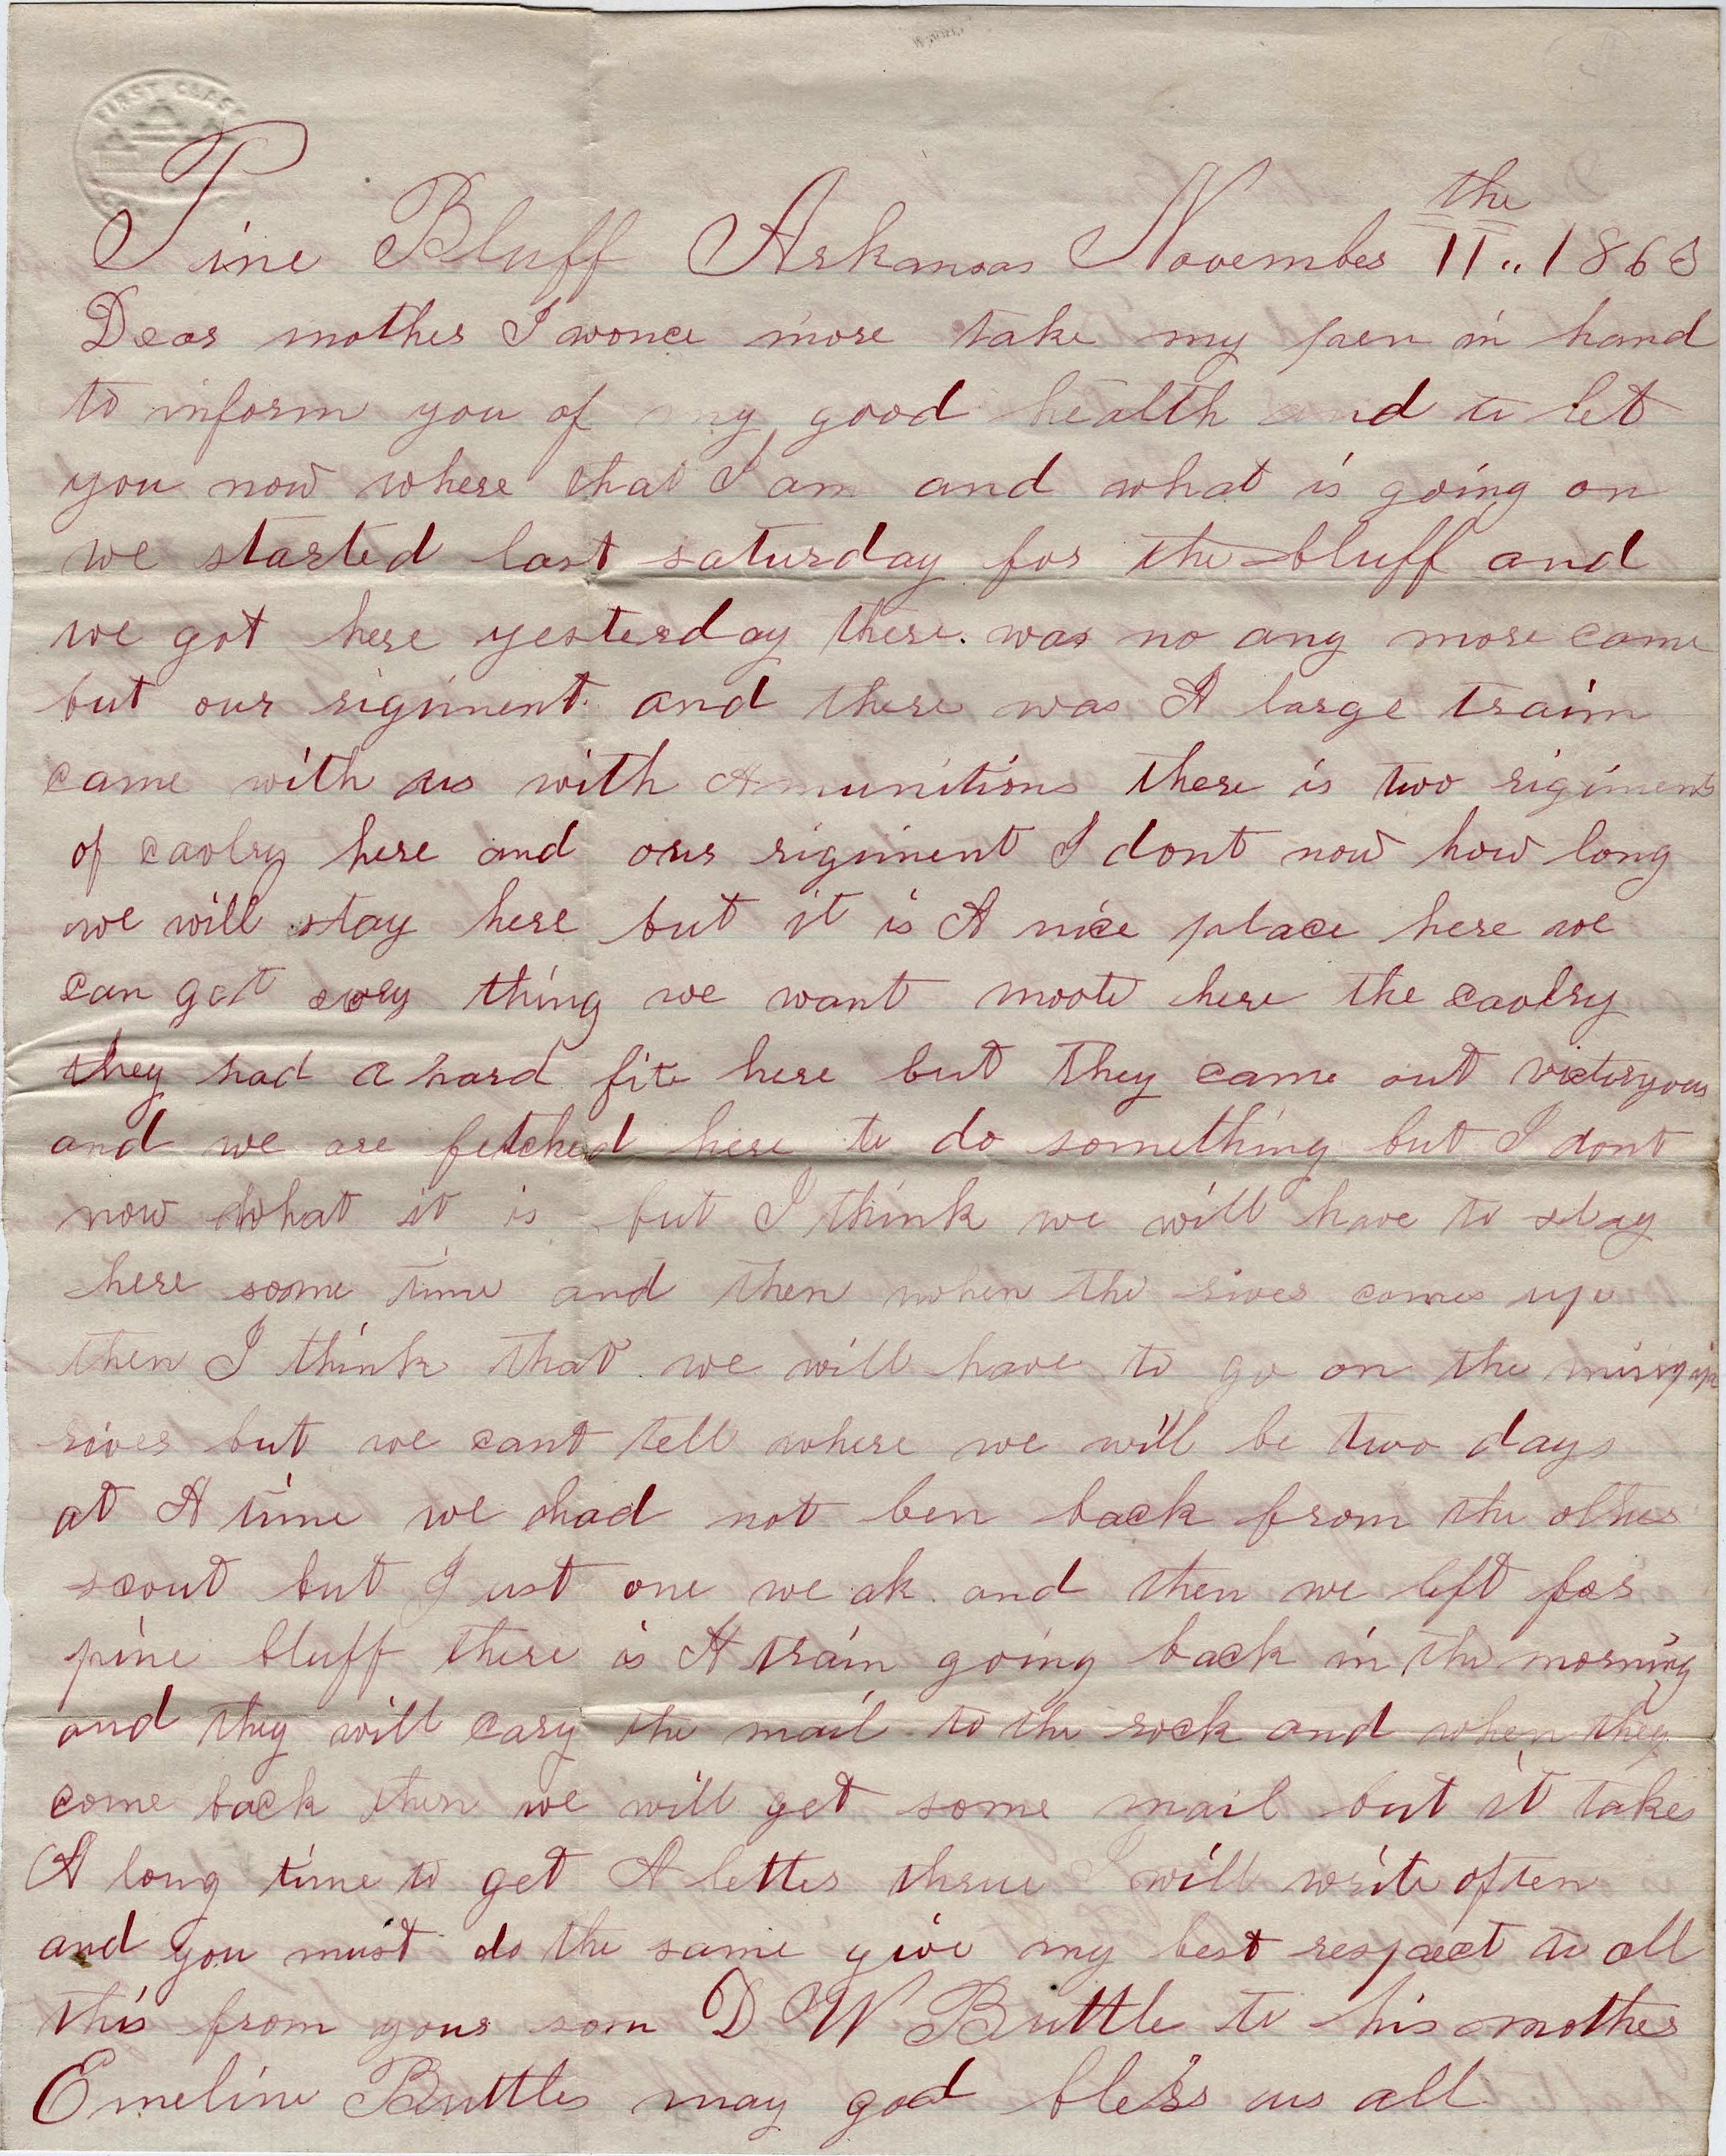 FIRST CLASS
Pine Bluff Arkansas November 11the .. 1863
Dear mother I wonce more take my pen in hand
to inform you of my good health and to let
you now where that I am and what is going on
we started last saturday for the bluff and
we got here yesterday there. was no any more came
but our rigiment. and there was A large train
came with us with Amunitions there is two rigiments
of cavolry here and our rigiment I dont now how long
we will stay here but it is A nice place here we
can get evry thing we want moote here the cavolry
they had a hard fite here but they came out victoryous
and we are fetched here to do something but I dont
now what it is but I think we will have to stay
here some time and then when the river comes up
then I think that we will have to go on the
river but we cant tell where we will be two days
at A time we had not ben back from the other
scout but Just one weak and then we left for
pine bluff there is A train going back in the morning
and they will cary the mail to the rock and when they
come back then we will get some mail but it takes
A long time to get A letter threw I will write often
and you must do the same give my best respect to all
this from your son D W Buttle to his mother
Emeline Buttles may god bless us all